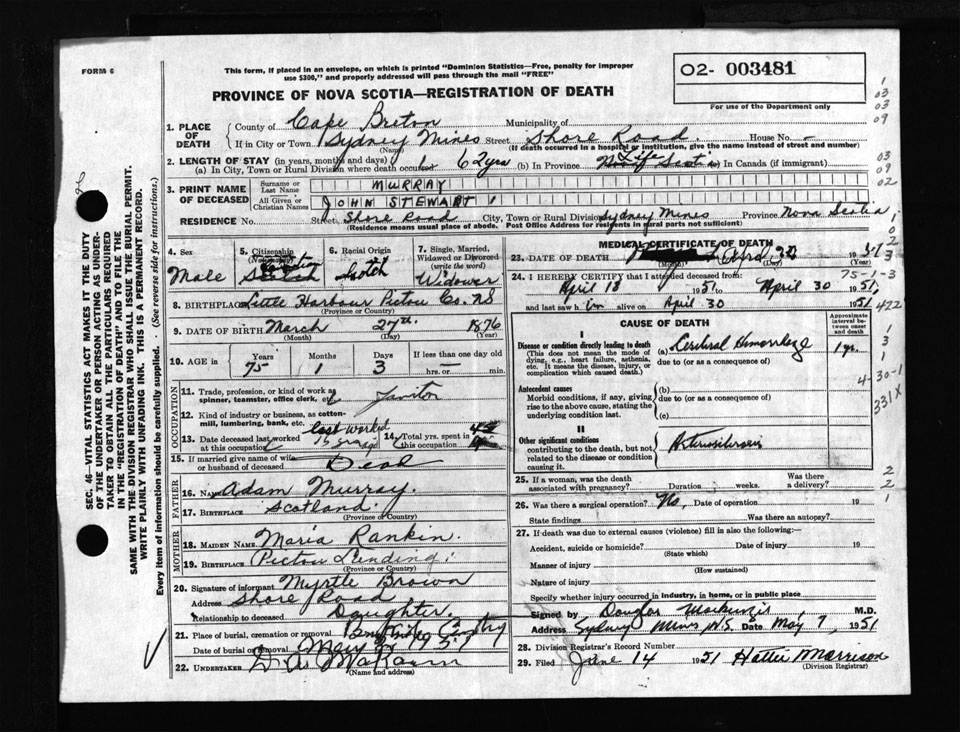 FORM 6
This form, if placed in an envelope, on which is printed "Dominion Statistics—Free, penalty for improper
use $300," and properly addressed will pass through the mail "FREE"
O2- 003481
For use of the Department only
PROVINCE OF NOVA SCOTIA—REGISTRATION OF DEATH
1. PLACE OF DEATH
County of Cape Breton Municipality of
If in City or Town Sydney Mines Street Shore Road. House No. -
(Name) (If death occurred in a hospital or institution, give the name instead of street and number)
2. LENGTH OF STAY (in years, months and days)
(a) In City, Town or Rural Division where death occurred 62 yrs (b) In Province Life in Canada (if immigrant)
3. PRINT NAME OF DECEASED
Surname or Last Name MURRAY
All Given or Christian Names JOHN STEWART
RESIDENCE No. Street Shore Road City, Town or Rural Division Sydney Mines Province Nova Scotia
(Residence means usual place of abode. Post Office Address for residents in rural parts not sufficient)
4. Sex Male
5. Citizenship
6. Racial Origin Scotch
7. Single, Married, Widowed or Divorced (write the word) Widower
8. BIRTHPLACE Little Harbour Pictou Co. NS
(Province or Country)
9. DATE OF BIRTH March 27th 1876
(Month) (Day) (Year)
10. AGE in Years Months Days If less than one day old
75 1 3 hrs or min.
OCCUPATION
11. Trade, profession, or kind of work as spinner, teamster, office clerk, etc. Janitor
12. Kind of industry or business, as cotton-mill, lumbering, bank, etc.
13. Date deceased last worked at this occupation last worked 15 yrs ago 14. Total yrs. spent in this occupation
15. If married give name of wife or husband of deceased Dead
FATHER
16. Name Adam Murray.
17. BIRTHPLACE Scotland.
(Province or Country)
MOTHER
18. MAIDEN NAME Maria Rankin
19. BIRTHPLACE Pictou Landing.
(Province or Country)
20. Signature of informant Myrtle Brown
Address Shore Road
Relationship to deceased Daughter.
21. Place of burial, cremation or removal
Date of burial or removal May 1951
22. UNDERTAKER
(Name and address)
MEDICAL CERTIFICATE OF DEATH
23. DATE OF DEATH
(Month) (Day)
24. I HEREBY CERTIFY that I attended deceased from:
April 18 1951 to April 30 1951,
and last saw him alive on April 30 1951
CAUSE OF DEATH
Approximate interval between onset and death
I
Disease or condition directly leading to death (a) Cerebral Hemorrhage 1 yr.
(This does not mean the mode of dying, e.g., heart failure, asthenia, etc. It means the disease, injury, or complication which caused death.)
due to (or as a consequence of)
Antecedent causes
Morbid conditions, if any, giving rise to the above cause, stating the underlying condition last.
(b)
due to (or as a consequence of)
(c)
II
Other significant conditions
contributing to the death, but not related to the disease or condition causing it.
25. If a woman, was the death associated with pregnancy? Duration weeks. Was there a delivery?
26. Was there a surgical operation? No. Date of operation 19
State findings Was there an autopsy?
27. If death was due to external causes (violence) fill in also the following:
Accident, suicide or homicide? Date of injury 19
(State which)
Manner of injury
(How sustained)
Nature of injury
Specify whether injury occurred in industry, in home, or in public place
Signed by Douglas Mackenzie M.D.
Address Sydney Mines, N.S. Date May 7, 1951
28. Division Registrar's Record Number
29. Filed June 14 1951 Hattie Morrison
(Division Registrar)
SEC. 46—VITAL STATISTICS ACT MAKES IT THE DUTY
OF THE UNDERTAKER OR PERSON ACTING AS UNDER-
TAKER TO OBTAIN ALL THE PARTICULARS REQUIRED
IN THE "REGISTRATION OF DEATH" AND TO FILE THE
SAME WITH THE DIVISION REGISTRAR WHO SHALL ISSUE THE BURIAL PERMIT.
WRITE PLAINLY WITH UNFADING INK. THIS IS A PERMANENT RECORD.
Every item of information should be carefully supplied. (See reverse side for instructions.)
1
03
03
09
03
09
02
75-1-3
422
4-30-1
331X
2
2
1